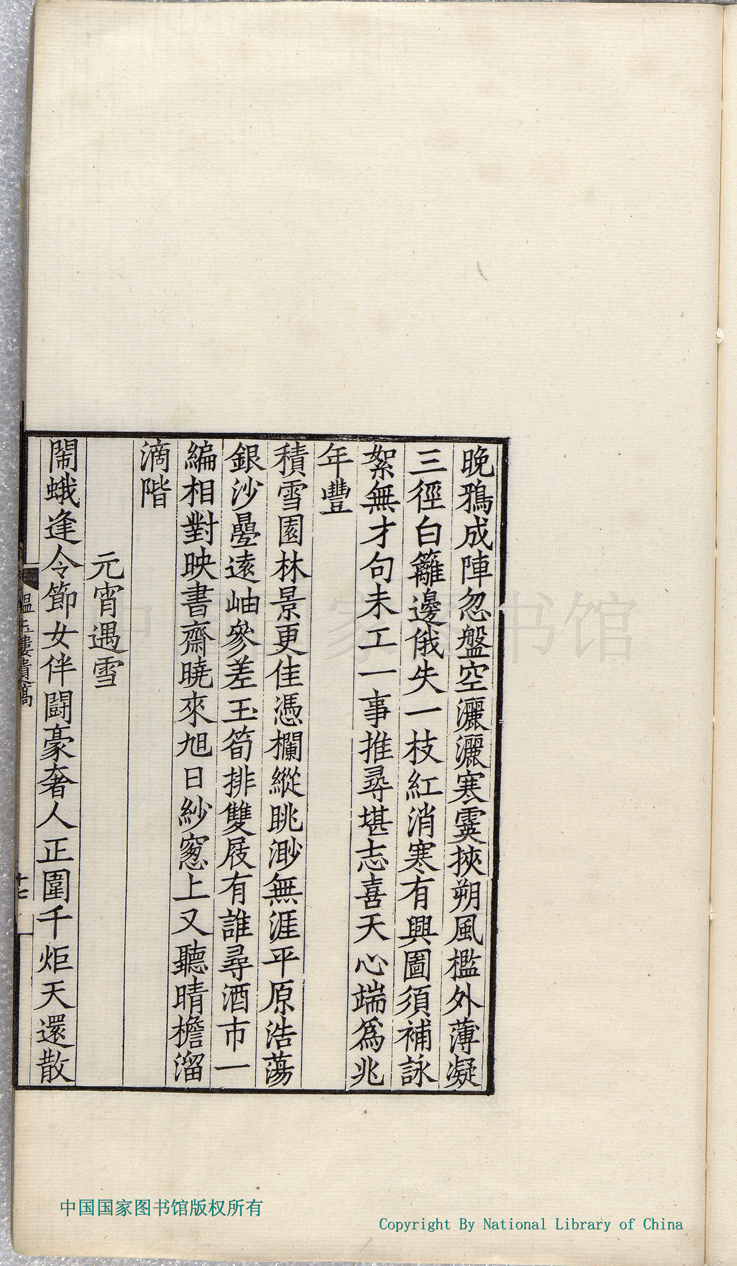 晚鴉成陣忽盤空灑灑寒霙挾朔風檻外薄凝
三徑白籬邊俄失一枝紅消寒有興圖須補詠
絮無才句未工一事推尋堪志喜天心端爲兆
年豐
積雪園林景更佳憑欄縱眺渺無涯平原浩蕩
銀沙疊遠岫參差玉筍排雙屐有誰尋酒市一
編相對映書齋曉來旭日紗窓上又聽晴檐溜
滴階
元宵遇雪
鬧蛾逢令節女伴鬬豪奢人正圍千炬天還散
韞玉樓遺稿
十七
中国国家图书馆
中国国家图书馆版权所有
Copyright By National Library of China